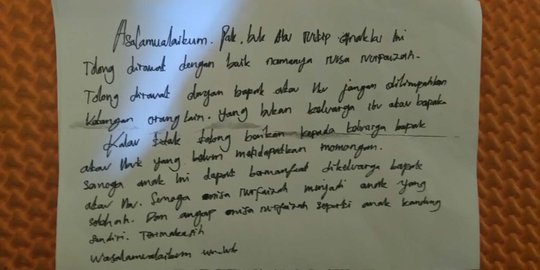 Asalamualaikum. Pak, buk Aku nitip anakku ini
Tolong dirawat dengan baik namanya nurfaizah.
Tolong dirawat dengan bapak atau ibu jangan dilimpahkan
ketangan orang lain. yang bukan keluarga ibu atau bapak
Kalau tidak tolong berikan kepada keluarga bapak
atau ibuk yang belum mendapatkan momongan.
semoga anak ini dapat bermanfaat dikeluarga bapak
atau ibu. Semoga nurfaizah menjadi anak yang
solehah. Dan anggap nurfaizah seperti anak kandung
sendiri. Termakasih
wasalamualaikum wr.wb